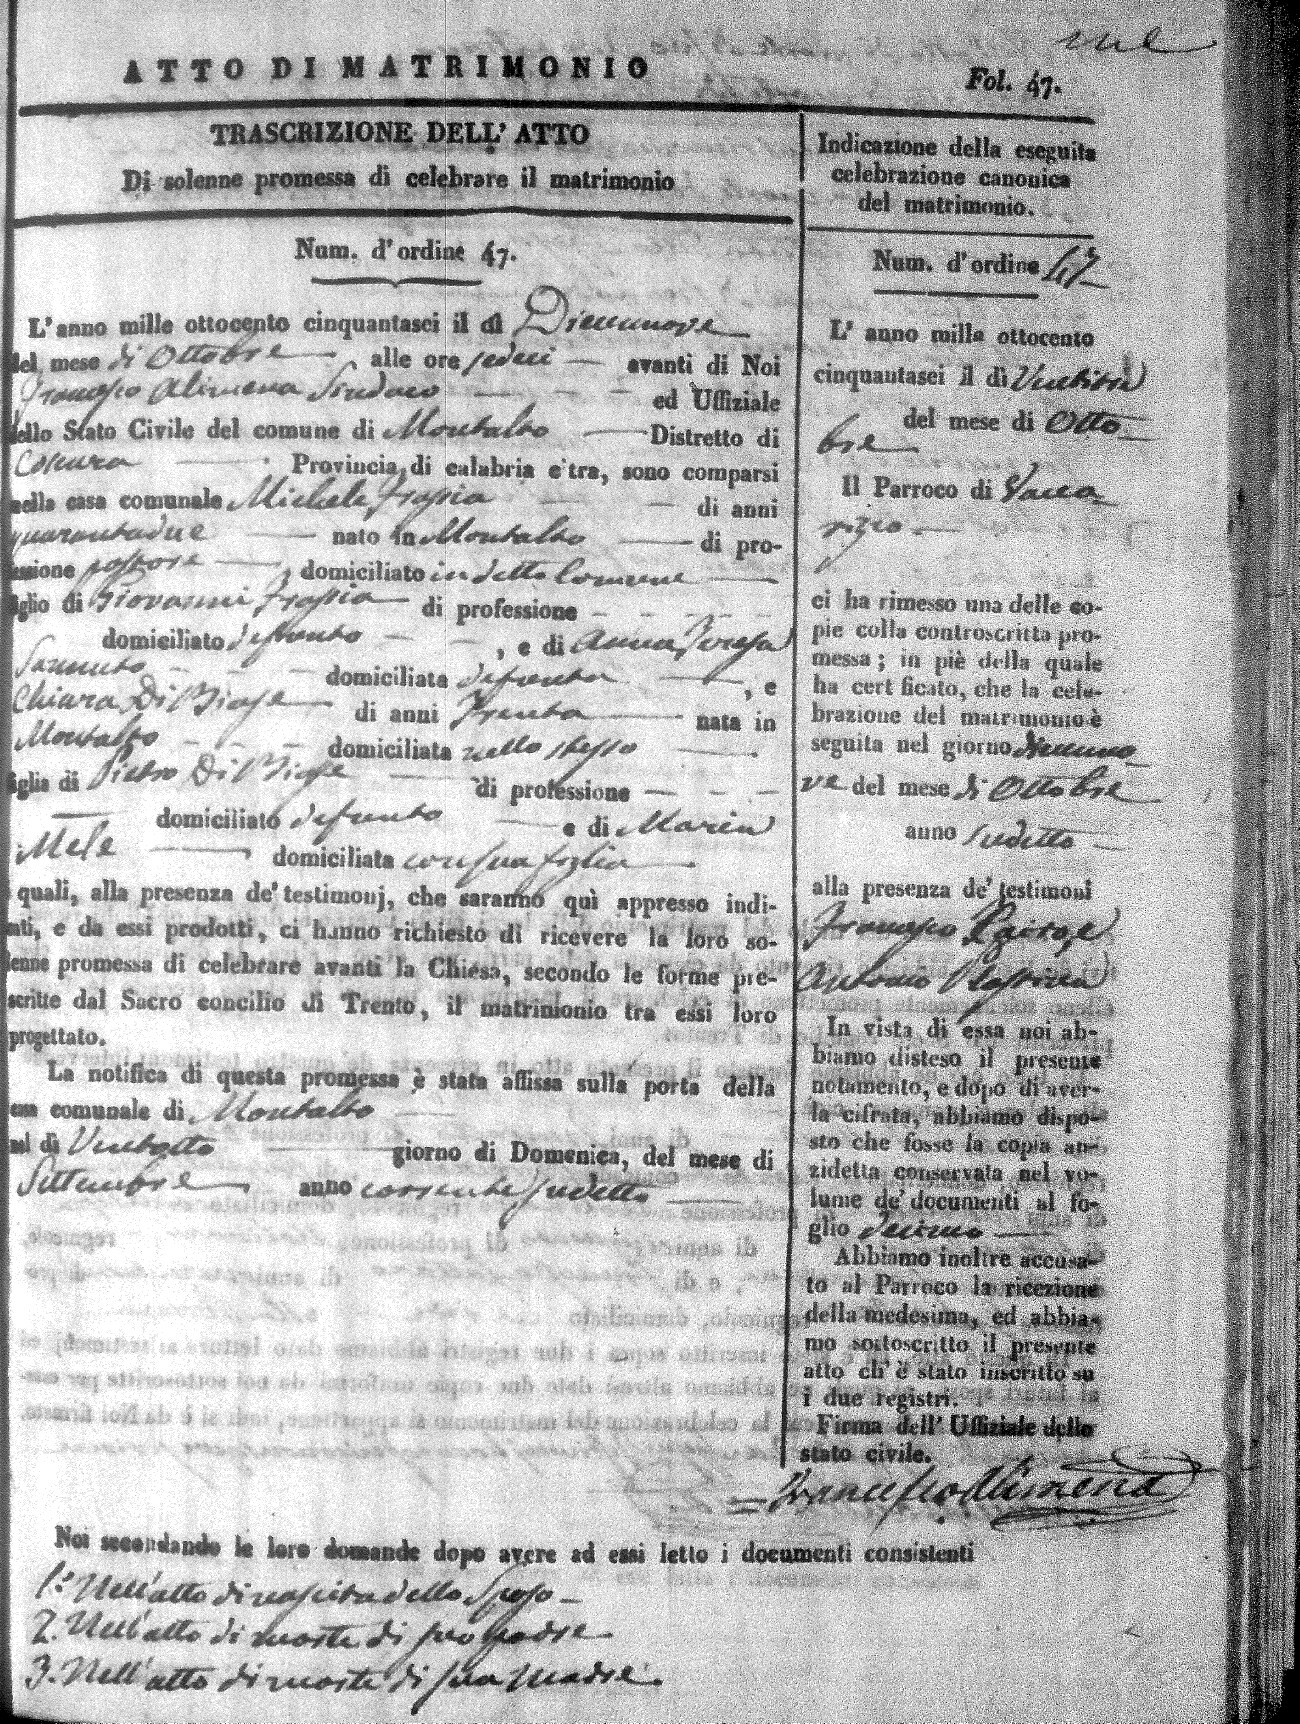 ATTO DI MATRIMONIO
Fol. 47.
TRASCRIZIONE DELL' ATTO
Di solenne promessa di celebrare il matrimonio
Num. d'ordine 47.
L'anno mille ottocento cinquantasei il dì Diecinnove
del mese di Ottobre, alle ore sedeci avanti di Noi
Francesco Alimena Sindaco ed Uffiziale
dello Stato Civile del comune di Montalto Distretto di
Cosenza Provincia di calabria c'tra, sono comparsi
nella casa comunale Michele Frassia di anni
quarantadue nato in Montalto di pro-
fessione pastore domiciliato in detto Comune
figlio di Giovanni Frassia di professione
domiciliato defunto, e di Anna Teresa
domiciliata defunta, e
Chiara Di Biase di anni Trenta nata in
Montalto domiciliata nello stesso
figlia di Pietro Di Biase di professione
domiciliato defunto e di Maria
Mele domiciliata con sua figlia
i quali, alla presenza de' testimonj, che saranno quì appresso indi-
cati, e da essi prodotti, ci hanno richiesto di ricevere la loro so-
lenne promessa di celebrare avanti la Chiesa, secondo le forme pre-
scritte dal Sacro concilio di Trento, il matrimonio tra essi loro
progettato.
La notifica di questa promessa è stata affissa sulla porta della
casa comunale di Montalto
nel dì Ventotto giorno di Domenica, del mese di
Settembre anno corrente sudetto
Noi secondando le loro domande dopo avere ad essi letto i documenti consistenti
1.° Nell'atto di nascita dello Sposo
2. Nell'atto di morte di suo padre
3. Nell'atto di morte di sua madre.
Indicazione della eseguita
celebrazione canonica
del matrimonio.
Num. d'ordine 47
L' anno milla ottocento
cinquantasei il dì Ventitrè
del mese di Otto
bre
Il Parroco di Vacca
rizzo
ci ha rimesso una delle co-
pie colla controscritta pro-
messa; in piè della quale
ha cert ficato, che la cele-
brazione del matrimonio è
seguita nel giorno diecinno
ve del mese di Ottobre
anno sudetto
alla presenza de' testimoni
Francesco
Antonio
In vista di essa noi ab-
biamo disteso il presente
notamento, e dopo di aver-
la cifrata, abbiamo dispo-
sto che fosse la copia an-
zidetta conservata nel vo-
lume de' documenti al fo-
glio decimo
Abbiamo inoltre accusa-
to al Parroco la ricezione
della medesima, ed abbia-
mo sottoscritto il presente
atto ch' è stato inscritto su
i due registri.
Firma dell' Uffiziale dello
stato civile.
Francesco Alimena